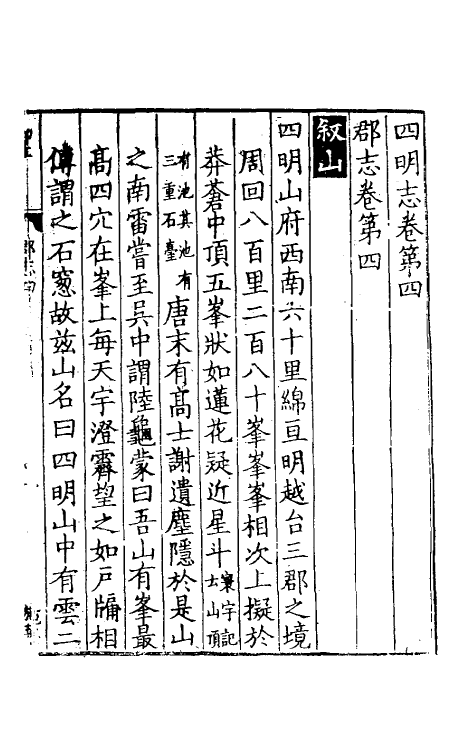 四明志卷第四
郡志卷第四
叙山
四明山府西南六十里綿亘明越台三郡之境
周回八百里二百八十峯峯峯相次上擬於
莽蒼中頂五峯狀如蓮花疑近星斗寰宇記
云山頂有池其池有三重石臺唐末有髙士謝遺塵隱於是山
之南雷嘗至吳中謂陸龜蒙曰吾山有峯最
髙四穴在峯上每天宇澄霽望之如戶牖相
傳謂之石窻故兹山名曰四明山中有雲二